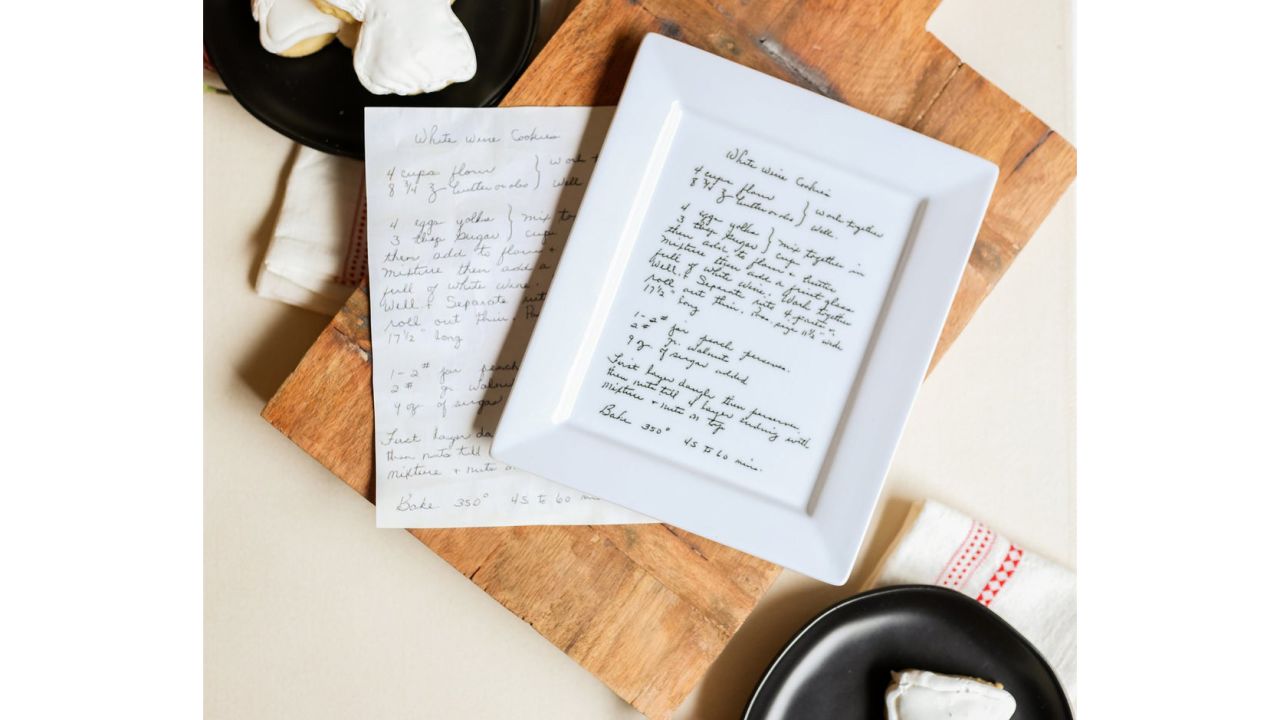 White Wine Cookies
4 cups flour } work t
8 3/4 z butter or oleo } well
4 eggs yolks } mix to
3 tbsp sugar } cup
then add to flour +
mixture then add a
full of white wine.
Well. + Separate into
roll out thin.
17 1/2" long
1-2# jar peach
2# gr walnu
9 oz of sugar
First layer do
then nuts till
mixture + nuts o
Bake 350° 45 to 60 mi
White Wine Cookies
4 cups flour } work together
8 3/4 z butter or oleo } well.
4 eggs yolks } mix together in
3 tbsp sugar } cup
then add to flour + butter
mixture then add a fruit glass
full of white wine. Work together
Well. + Separate into 4 parts.
roll out thin. Pan size 11 1/2" wide
17 1/2" long
1-2# jar peach perserves.
2# gr. walnuts
9 oz of sugar added
First layer dough then perserve
then nuts till 4 layer ending with
mixture + nuts on top
Bake 350° 45 to 60 mins.